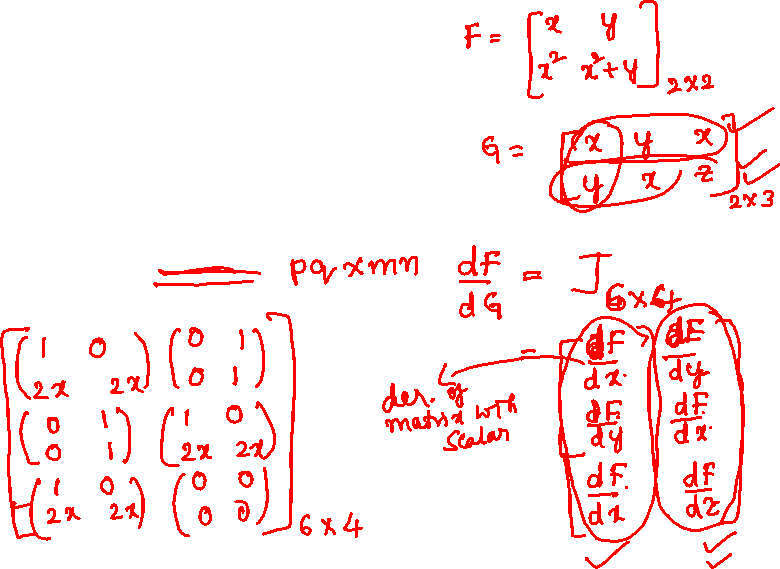 F = [x y
x² x²+y] 2×2
G = [x y x
y x z] 2×3
pq×mn dF/dG = J 6×4
= [dF/dx dF/dy
dF/dy dF/dx
dF/dx dF/dz]
der. of
matrix with
scalar
[(1 0 (0 1
2x 2x) 0 1)
(0 1 (1 0
0 1) 2x 2x)
(1 0 (0 0
2x 2x) 0 0)] 6×4